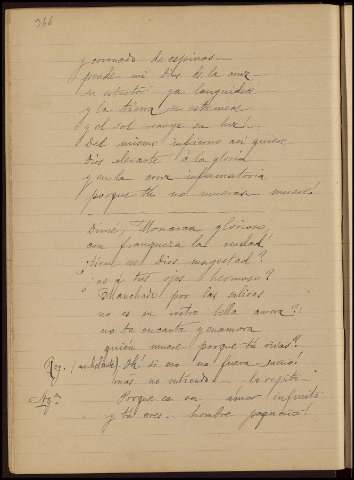 366
y coronado de espinas
pende mi Dios de la cruz
su estertor ya languidece
y la tierra se estremece
y el sol ... su luz!
Del mismo infierno así quiere
Dios elevarte á la gloria
y en la cruz infamatoria
porque tú no mueras muere!
Dime, Monarca glorioso,
con franqueza la verdad
¿tiene mi Dios magestad?
¿no á tus ojos hermoso?
¿Manchado por las salivas
no es su rostro bella aurora?
no te encanta y enamora
quién muere porque tú vivas?
Rey. (anhelante) Ah! si eso no fuera
mas no entiendo la repito
Agn Porque es un amor infinito
y tú eres hombre pequeño!